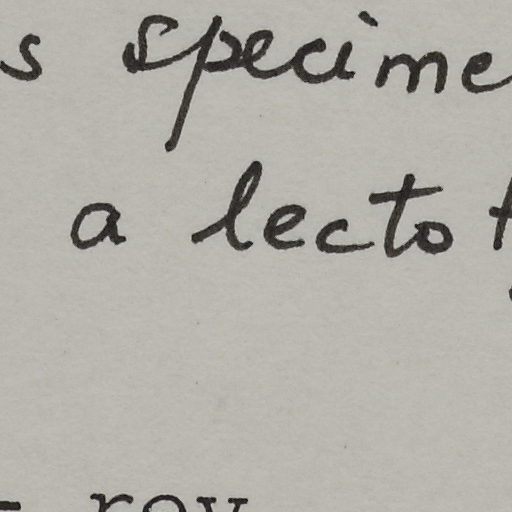 s specime
a lectot
- rov